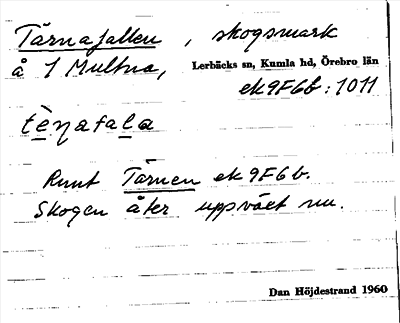 Tärnafallen, skogsmark
å 1 Multna, Lerbäcks sn, Kumla hd, Örebro län
ek9F6b:1011
tὲ̠ŋafal̠a
Runt Tärnen ek9F6b.
Skogen åter uppväxt nu.
Dan Höjdestrand 1960